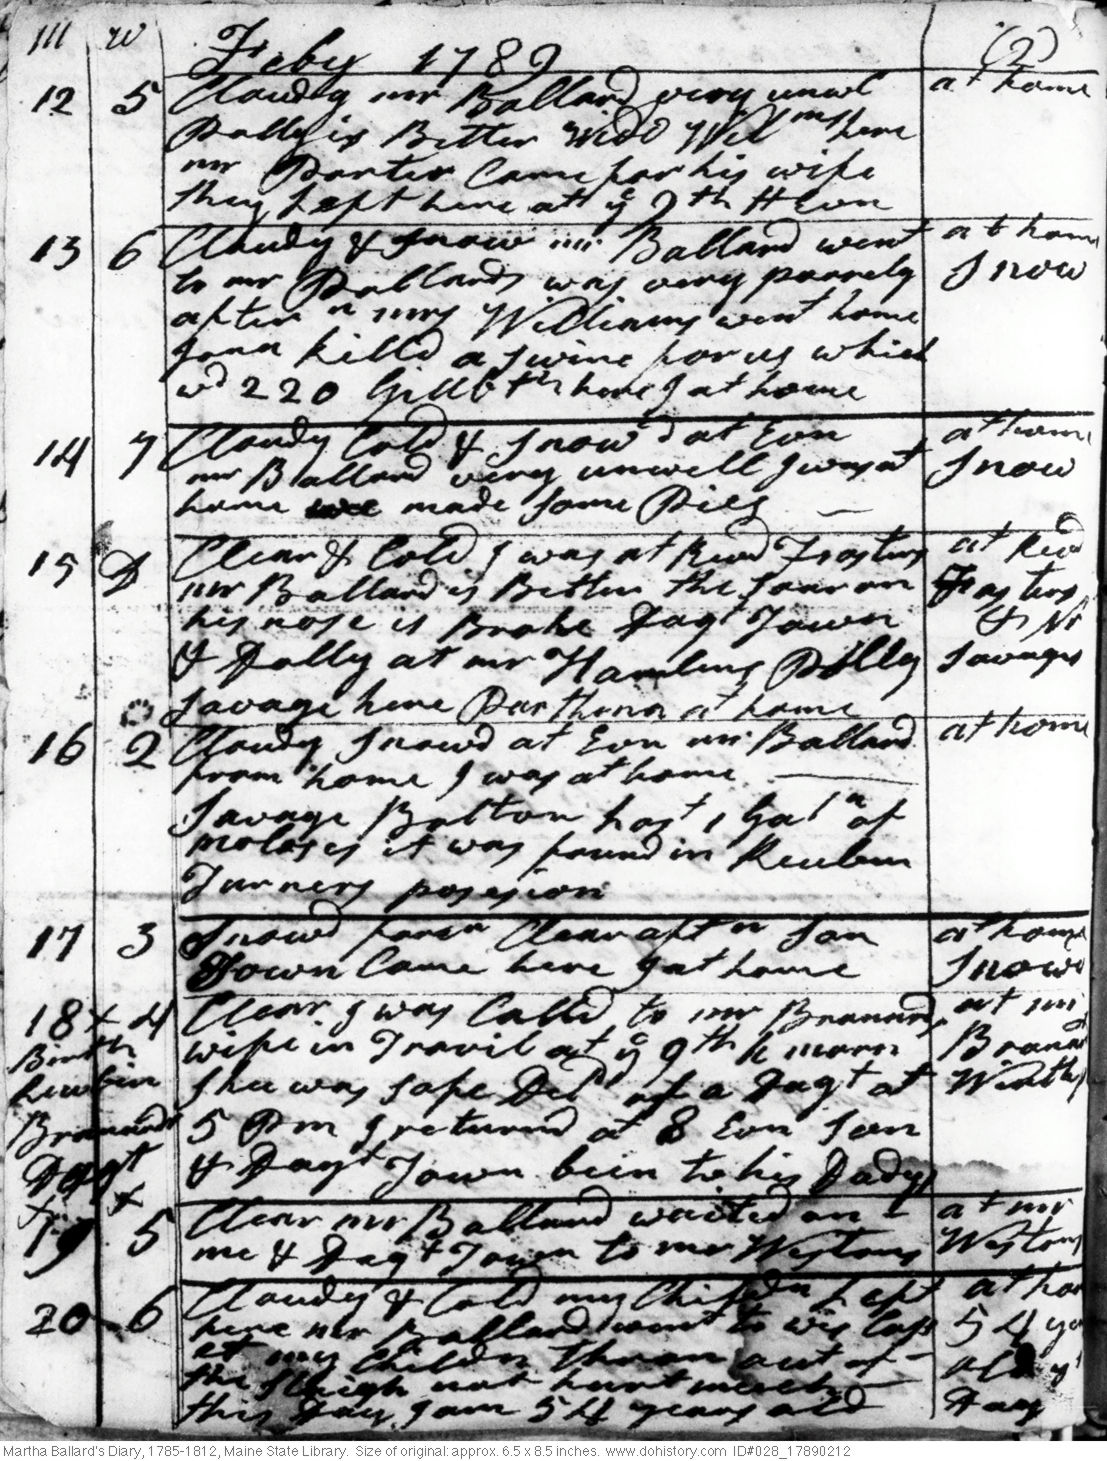 m w Feby 1789 (2)
12 5 Cloudy mr Ballard very unwel at home
Dolly is Better Wido Wilms here
mr Porter Came for his wife
they Left here att ye 9th H Evn
13 6 Cloudy & snow mr Ballard went at home
to mr Pollards was very poorely Snow
aftern mrs Williams went home
Jona killd a swine for us which
wd 220 here I at home
14 7 Cloudy Cold & snowd at Evn at home
mr Ballard very unwell I was at Snow
home made some Pies
15 D Clear & Cold I was at Revd Fosters at Revd
mr Ballard is Better the soar on Fosters
his nose is Broke Dagt Town & Mr
& Dolly at mr Hamlins Polly Savages
Savage here Parthena at home
16 2 Cloudy snowd at Evn mr Ballard at home
from home I was at home
Savage Bolton host 1 Galn of
molases it was found in Reuben
Turners posesion
17 3 Snowd foren Clear aftn Son at home
Town Came here I at home Snowd
18 x 4 Clear I was Calld to mr Branards at mr
Birth wife in Travil at ye 9th h morn
Rewbin Shee was safe Deld of a Dagt at
Branards 5 Pm I returnd at 8 Evn Son
Dagt & Dagt Town been to his Dadys
x x
19 5 Clear mr Ballard waited on at mr
me & Dagt Town to mr Westons Westons
20 6 Cloudy & Cold my Childn Left at hom
here mr Ballard went to wis Cass 54 ye
et my Childn thron out of old ys
the sleigh not hurt much Day
this Day I am 54 years old
Martha Ballard's Diary, 1785-1812, Maine State Library. Size of original: approx. 6.5 x 8.5 inches. www.dohistory.com ID#028_17890212